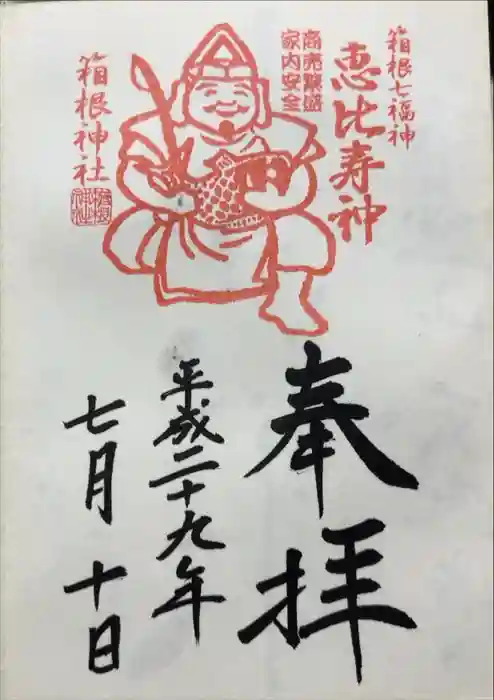 箱根七福神
恵比寿神
商売繁盛
家内安全
箱根神社
奉拝
平成二十九年
七月十日